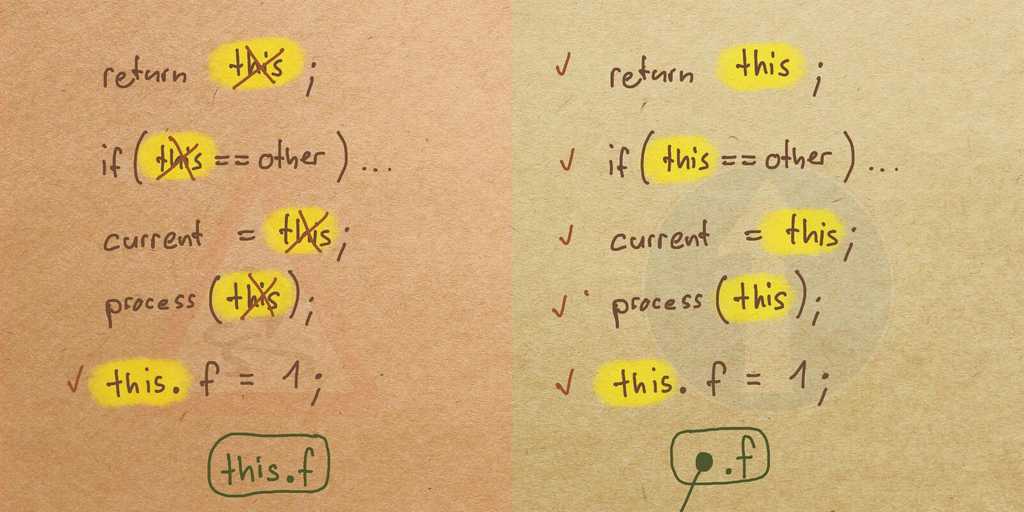 return this;
if (this == other) ...
current = this;
process (this);
this. f = 1;
this.f
return this;
if (this == other) ...
current = this;
process (this);
this. f = 1;
.f